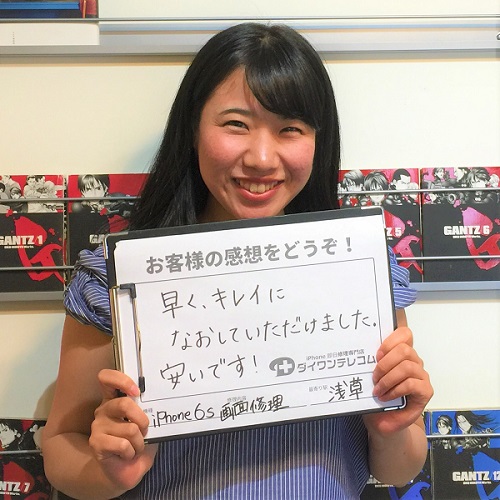 GANTZ 1
GANTZ
5
GANTZ 6
お客様の感想をどうぞ！
早く、キレイに
なおしていただけました。
安いです！
iPhone 即日修理専門店
ダイワンテレコム
iPhone 6s 画面修理 浅草
GANTZ 7
GANTZ 12